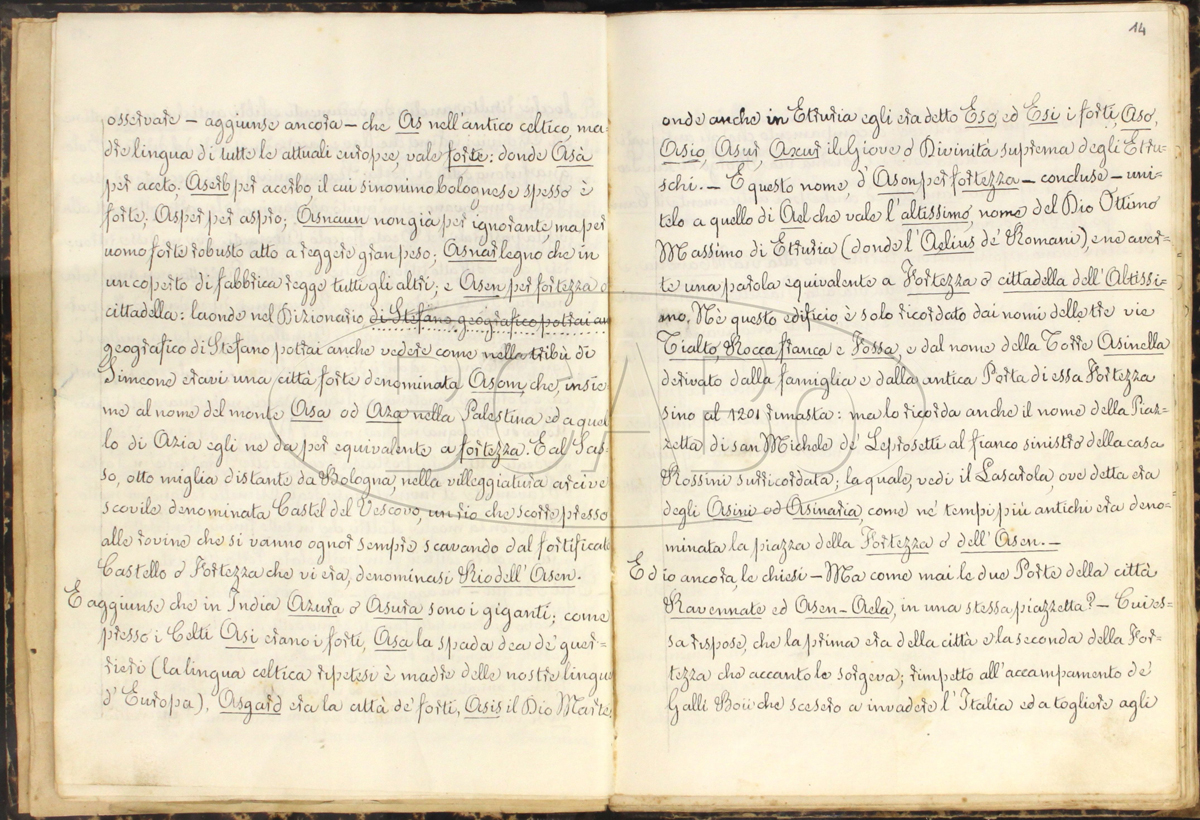 osservare – aggiunse ancora – che As nell'antico celtico, ma=
dre lingua di tutte le attuali europee, vale forte: donde Asà
per aceto; Aserb per acerbo, il cui sinonimo bolognese spesso è
forte; Asper per aspro; Asnaun non già per ignorante, ma per
uomo forte robusto atto a reggere gran peso; Asnar legno che in
un coperto di fabbrica regge tutti gli altri; e Asen per fortezza o
cittadella: laonde nel Dizionario di Stefano geografico potrai an
geografico di Stefano potrai anche vedere come nella tribù di
Simeone eravi una città forte denominata Asom, che, insie=
me al nome del monte Asa od Aza nella Palestina ed a quel
lo di Azia egli ne da per equivalente a fortezza. E al Sas=
so, otto miglia distante da Bologna, nella villeggiatura arcive
scovile denominata Castel del Vescovo, un rio che scorre presso
alle rovine che si vanno ognor sempre scavando dal fortificato
Castello o Fortezza che vi era, denominasi Rio dell'Asen.
E aggiunse che in India Azura o Asura sono i giganti; come
presso i Celti Asi erano i forti, Asa la spada dea de' guer=
rieri (la lingua celtica ripetesi è madre delle nostre lingue
d'Europa), Asgard era la città de' forti, Asis il Dio Marte:
14
onde anche in Etruria egli era detto Eso, ed Esi i forti, Aso,
Asio, Asur, Axur il Giove o Divinità suprema degli Etru=
schi. – E questo nome, d'Ason per fortezza – concluse – uni=
telo a quello di Ael che vale l'altissimo, nome del Dio Ottimo
Massimo di Etruria (donde l'Aelius de' Romani), e ne aver=
te una parola equivalente a Fortezza o cittadella dell'Altissi=
mo. Nè questo edificio è solo ricordato dai nomi delle tre vie
Tialto, Rocca franca e Fossa, e dal nome della Torre Asinella
derivato dalla famiglia e dalla antica Porta di essa Fortezza
sino al 1201 rimasta: ma lo ricorda anche il nome della Piaz=
zetta di san Michele de' Leprosetti al fianco sinistro della casa
Rossini surricordata; la quale, vedi il Lasarola, ove detta era
degli Asini od Asinaria, come ne' tempi più antichi era deno=
minata la piazza della Fortezza o dell'Asen. –
Ed io ancora, le chiesi – Ma come mai le due Porte della città
Ravennate ed Asen-Aela, in una stessa piazzetta? – Cui es=
sa rispose, che la prima era della città e la seconda della For=
tezza che accanto le sorgeva; rimpetto all'accampamento de'
Galli Boii che scesero a invadere l'Italia ed a togliere agli